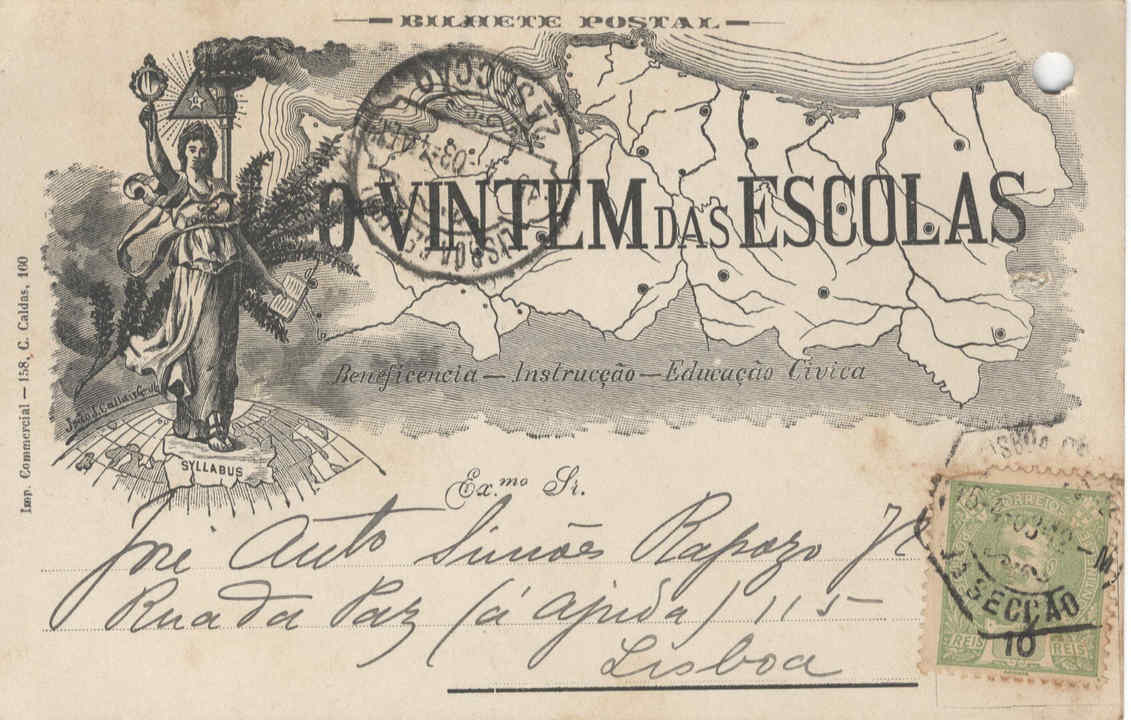 BILHETE POSTAL
O VINTEM DAS ESCOLAS
Beneficencia — Instrucção — Educação Civica
SYLLABUS
Imp. Commercial — 158, C. Caldas, 160
Ex.mo Sr.
José Anto Simões Rapozo Jr
Rua da Paz (á Ajuda) 115
Lisboa
2ª SECÇÃO
LISBOA
CORREIOS
1ª SECÇÃO
REIS 10 REIS